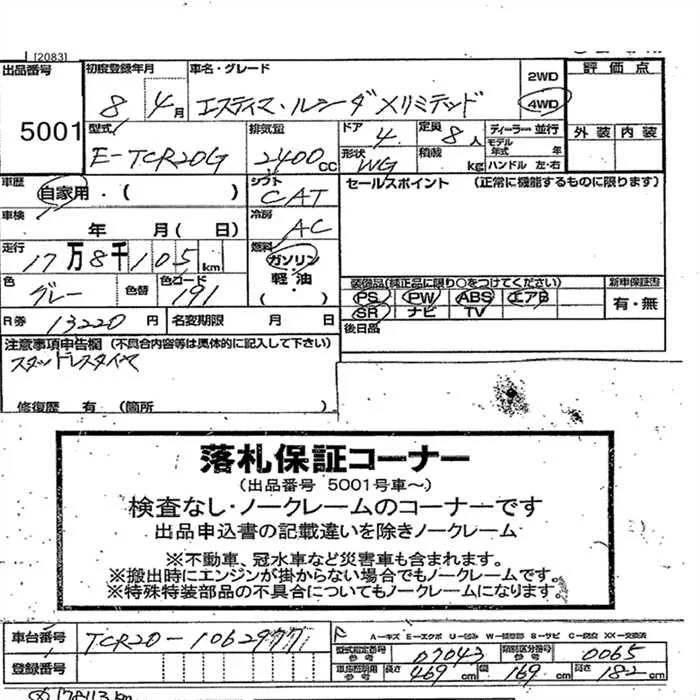 [2083]
出品番号 初度登録年月 車名・グレード 2WD 評価点
5001 8 4月 エスティマ・ルシーダ Xリミテッド 4WD
型式 排気量 ドア 定員 ディーラー 並行 外装 内装
E-TCR20G 2400cc 4 8人 モデル年式 年
形状 WG 積載 kg ハンドル 左・右
車歴 シフト セールスポイント (正常に機能するものに限ります)
自家用・( ) CAT
車検 年 月( 日) 冷房 AC
走行 17万8千105km 燃料 ガソリン・軽油・( )
色 グレー 色替 色コード 191
装備品(純正品に限り○をつけてください) 新車保証書
PS PW ABS エアB 有・無
SR ナビ TV
R券 13220円 名変期限 月 日 後日品
注意事項申告欄 (不具合内容等は具体的に記入して下さい)
スタッドレスタイヤ
修復歴 有 (箇所 )
落札保証コーナー
(出品番号 5001号車〜)
検査なし・ノークレームのコーナーです
出品申込書の記載違いを除きノークレーム
※不動車、冠水車など災害車も含まれます。
※搬出時にエンジンが掛からない場合でもノークレームです。
※特殊特装部品の不具合についてもノークレームになります。
車台番号 TCR20-1062977 A-キズ E-エクボ U-凹み W-補修跡 S-サビ C-腐食 XX-交換済
型式指定番号 参考 07043 類別区分番号 参考 0065
登録番号 車庫証明用 参考 長さ 469cm 幅 169cm 高さ 182cm
178413km